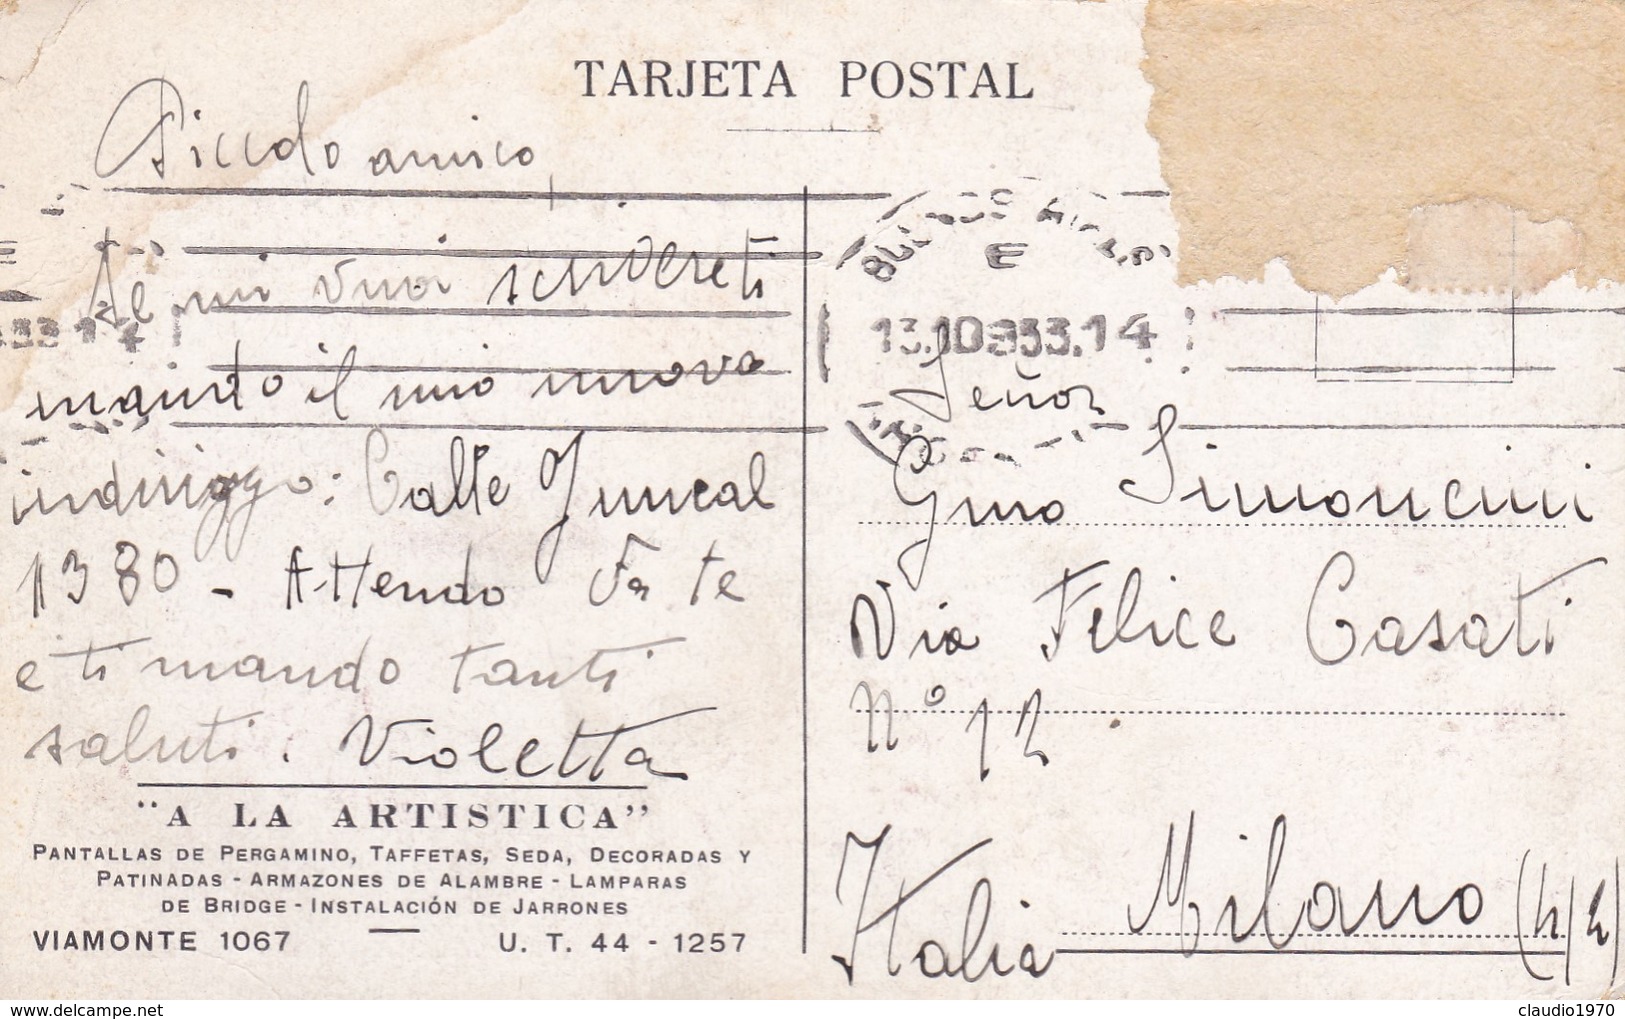 TARJETA POSTAL
Piccolo amico,
Se mi vuoi scrivereti
mando il mio nuovo
indirizzo: Calle Juncal
1380 - Attendo Fa te
e ti mando tanti
saluti. Violetta
"A LA ARTISTICA"
PANTALLAS DE PERGAMINO, TAFFETAS, SEDA, DECORADAS Y
PATINADAS - ARMAZONES DE ALAMBRE - LAMPARAS
DE BRIDGE - INSTALACIÓN DE JARRONES
VIAMONTE 1067 U. T. 44 - 1257
BUENOS AIRES
E
13.10 933.14
933 14
Señor
Gino Simoncini
Via Felice Casati
Nº 12
Milano
Italia
claudio1970